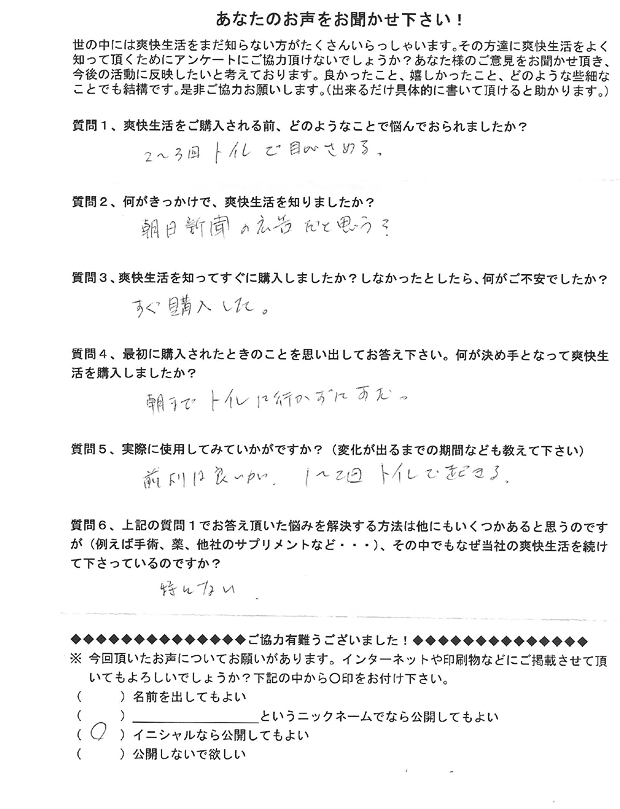 あなたのお声をお聞かせ下さい！
世の中には爽快生活をまだ知らない方がたくさんいらっしゃいます。その方達に爽快生活をよく
知って頂くためにアンケートにご協力頂けないでしょうか？あなた様のご意見をお聞かせ頂き、
今後の活動に反映したいと考えております。良かったこと、嬉しかったこと、どのような些細な
ことでも結構です。是非ご協力お願いします。（出来るだけ具体的に書いて頂けると助かります。）
質問１、爽快生活をご購入される前、どのようなことで悩んでおられましたか？
2～3回 トイレで目がさめる。
質問２、何がきっかけで、爽快生活を知りましたか？
朝日新聞の広告だと思う？
質問３、爽快生活を知ってすぐに購入しましたか？しなかったとしたら、何がご不安でしたか？
すぐ購入した。
質問４、最初に購入されたときのことを思い出してお答え下さい。何が決め手となって爽快生
活を購入しましたか？
朝まで トイレに行かずにすむ。
質問５、実際に使用してみていかがですか？（変化が出るまでの期間なども教えて下さい）
前よりは良いが、1～2回 トイレで起きる。
質問６、上記の質問１でお答え頂いた悩みを解決する方法は他にもいくつかあると思うのです
が（例えば手術、薬、他社のサプリメントなど・・・）、その中でもなぜ当社の爽快生活を続け
て下さっているのですか？
特にない
◆◆◆◆◆◆◆◆◆◆◆◆◆◆ご協力有難うございました！◆◆◆◆◆◆◆◆◆◆◆◆◆◆
※ 今回頂いたお声についてお願いがあります。インターネットや印刷物などにご掲載させて頂
いてもよろしいでしょうか？下記の中から〇印をお付け下さい。
（　　）名前を出してもよい
（　　）＿＿＿＿＿＿＿＿＿＿というニックネームでなら公開してもよい
（ 〇 ）イニシャルなら公開してもよい
（　　）公開しないで欲しい